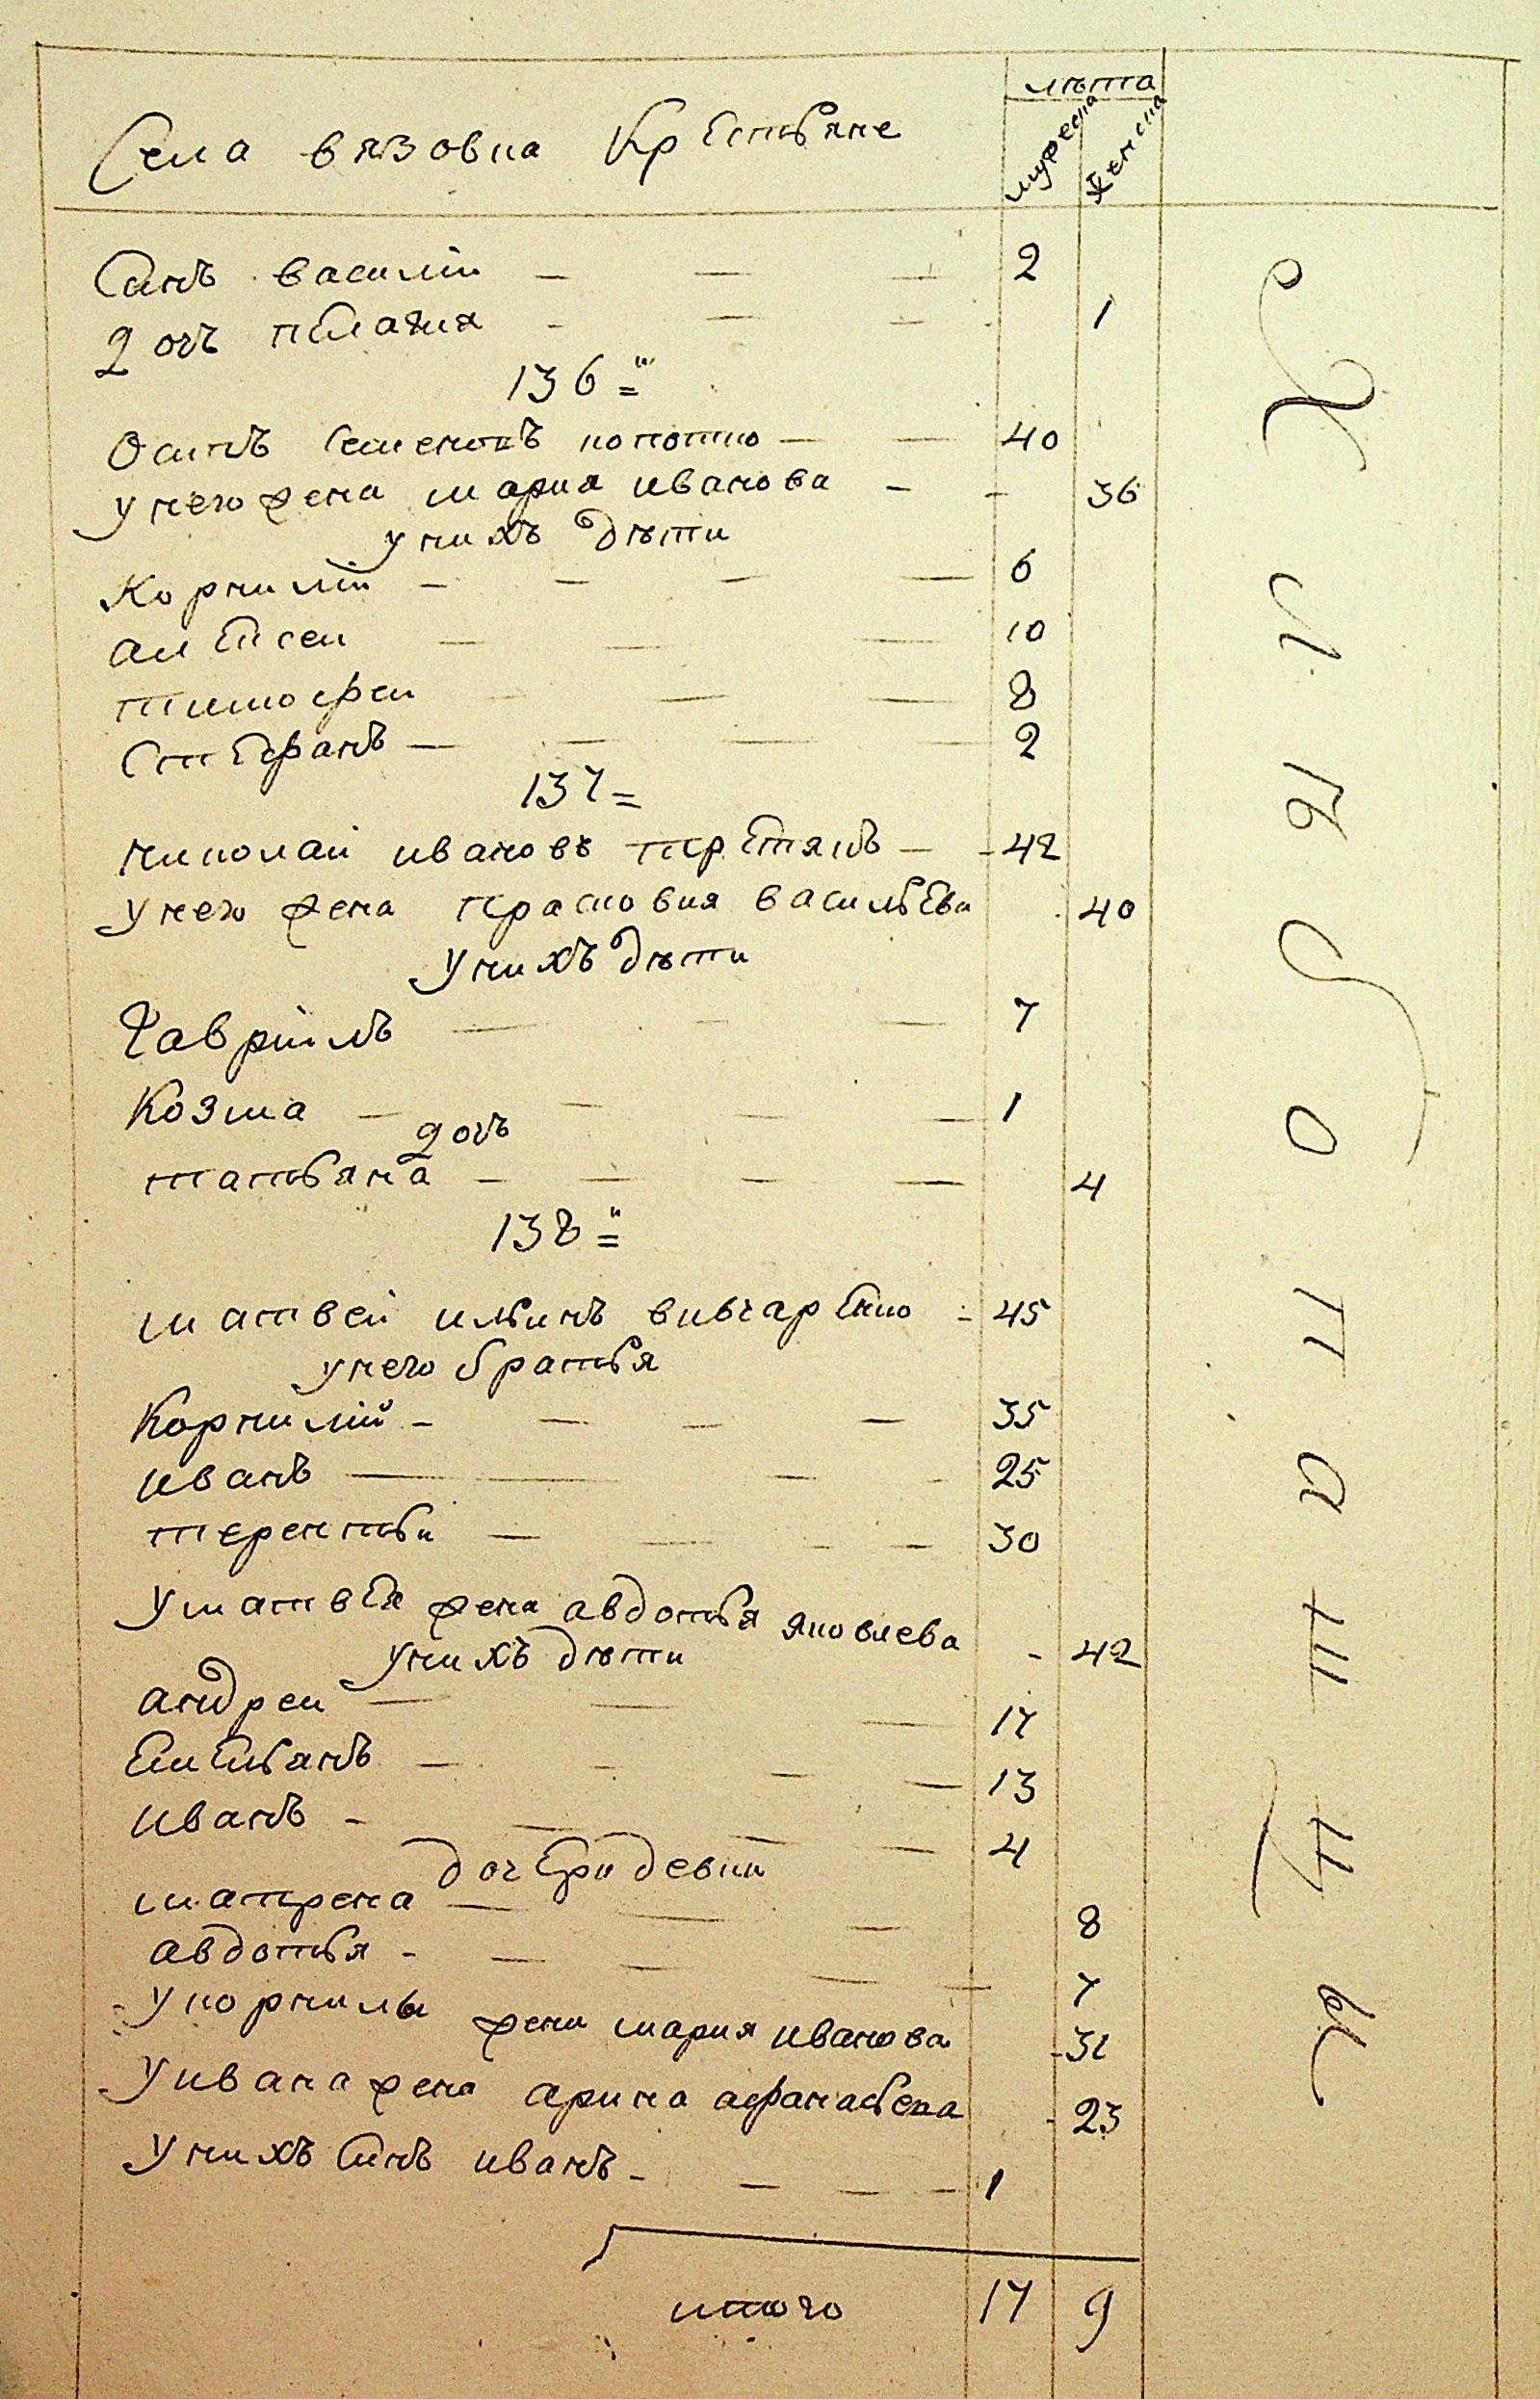 лѣта
Села вязовка Крестьяне мужеска женска
Синъ василїи 2
дочъ пелагия 1
136
Осипъ Семеновъ копотко 40
у него жена мария иванова 36
у нихъ дѣти
Корнилїй 6
алексеи 10
тимофеи 8
Стефанъ 2
137
николай ивановъ третякъ 42
у него жена прасковия васильева 40
у нихъ дѣти
Гаврїилъ 7
Козма 1
дочъ
татьяна 4
138
матвей ильинъ вивчаренко 45
у него братья
Корнилїй 35
иванъ 25
терентьи 30
у матвея жена авдотья яковлева 42
у нихъ дѣти
андреи 17
емельянъ 13
иванъ 4
дочери девки
матрена 8
авдотья 7
у корнилы жена мария иванова 31
у ивана жена арина афанасьева 23
у нихъ синъ иванъ 1
итого 17 9